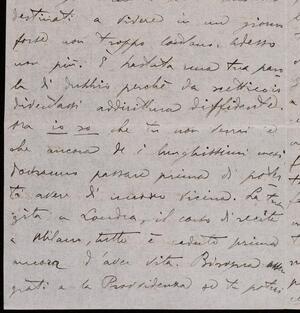 destinati a vivere in un giorno
forse non troppo lontano. Adesso
non più. È bastata una tua paro
la di dubbio perchè da scettico io
diventassi addirittura diffidente.
Ora io so che tu non verrai e
che ancora de i lunghissimi mesi
dovranno passare prima di poter
ti avere di nuovo vicina. La tua
gita a Londra, il corso di recite
a Milano, tutto è caduto prima
ancora d'aver vita. Bisogna
grati a la Provvidenza se ti potrò